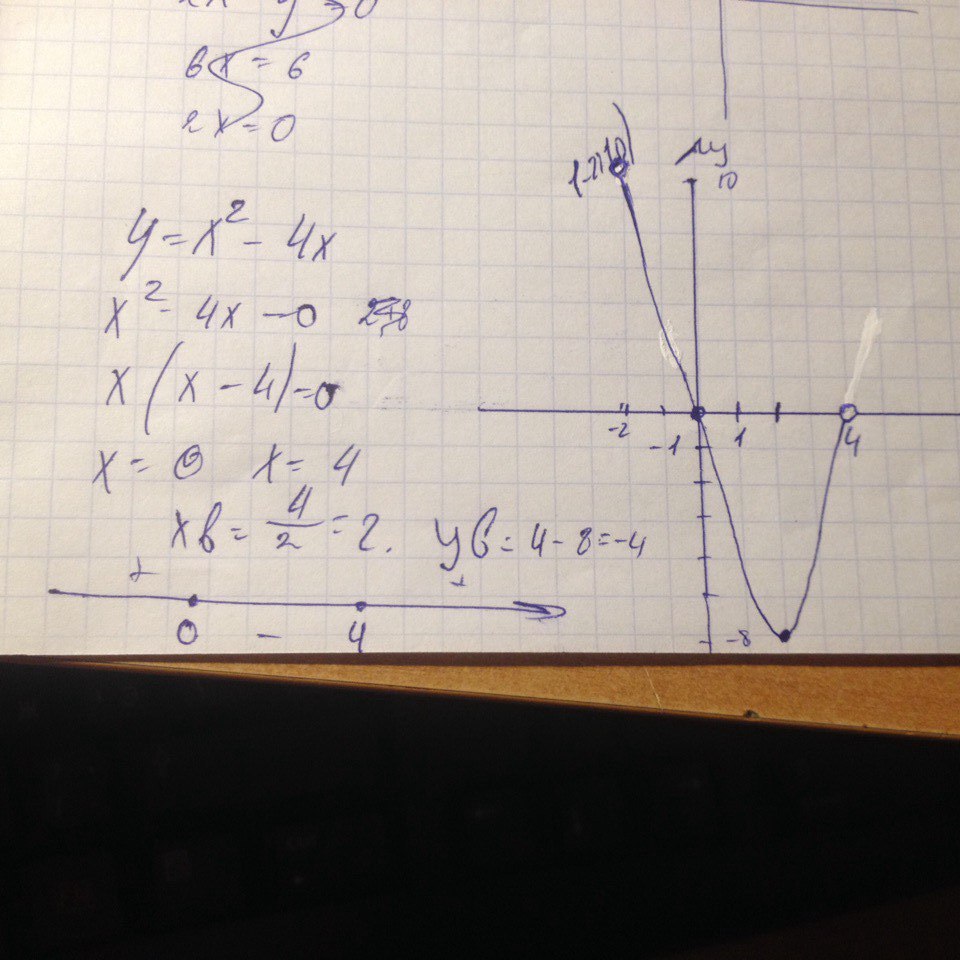 6x = 6
2x = 0
y = x² - 4x
x² - 4x - 0
x (x - 4) - 0
x = 0 x = 4
xв = 4/2 = 2. yв = 4 - 8 = -4
+ - +
0 4
y
10
-2 -1 1 4
-8